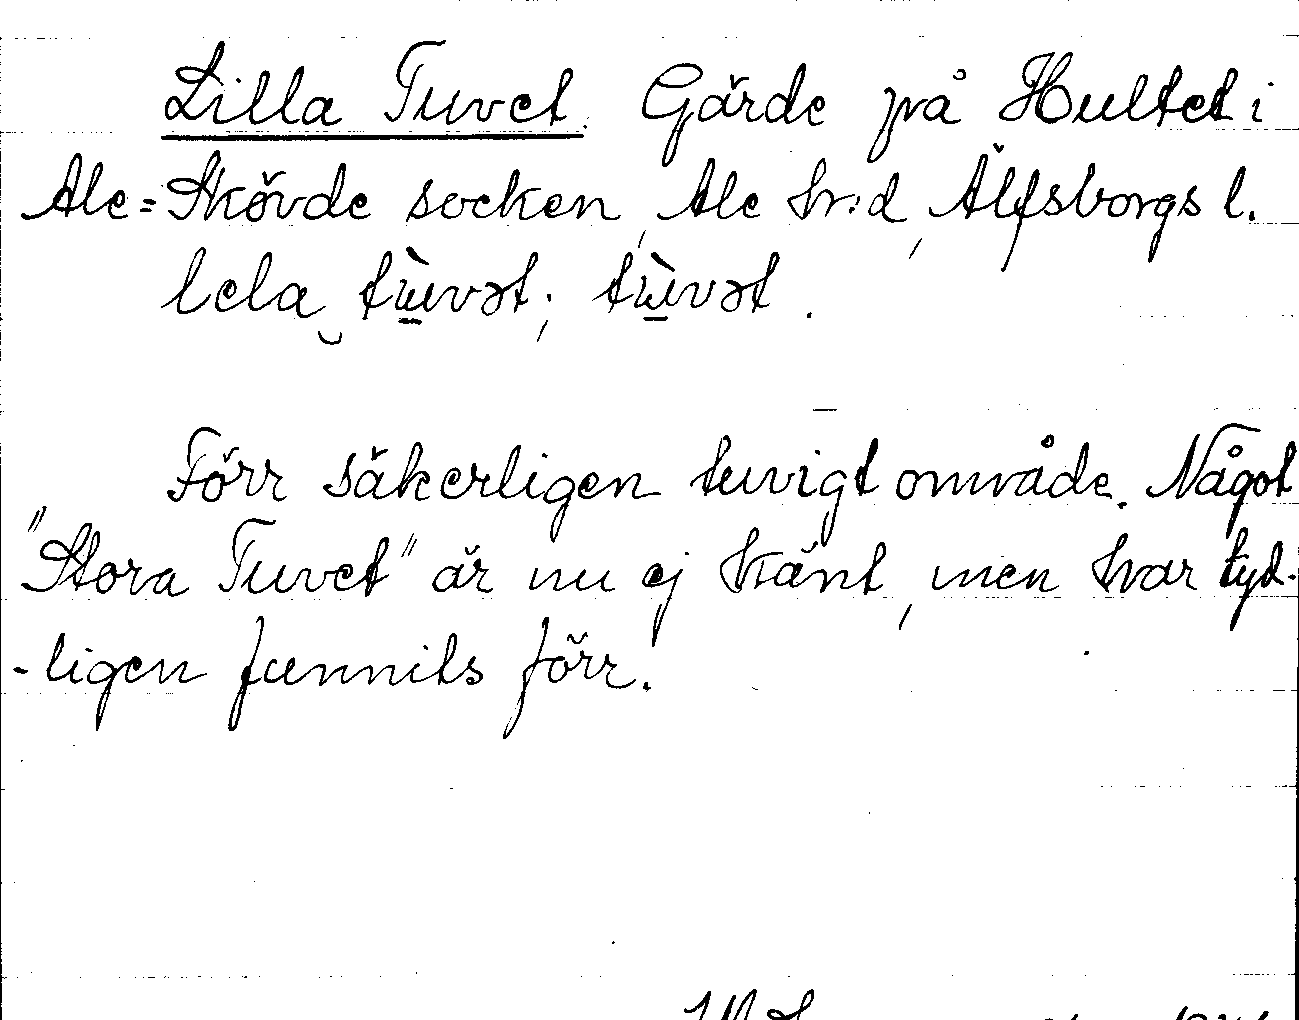 Lilla Tuvet. Gärde på Hultet i
Ale=Skövde socken, Ale hr:d, Älfsborgs l.
lela tù̲vət; tù̲vət.
Förr säkerligen tuvigt område. Något
"Stora Tuvet" är nu ej känt, men har tyd-
-ligen funnits förr.